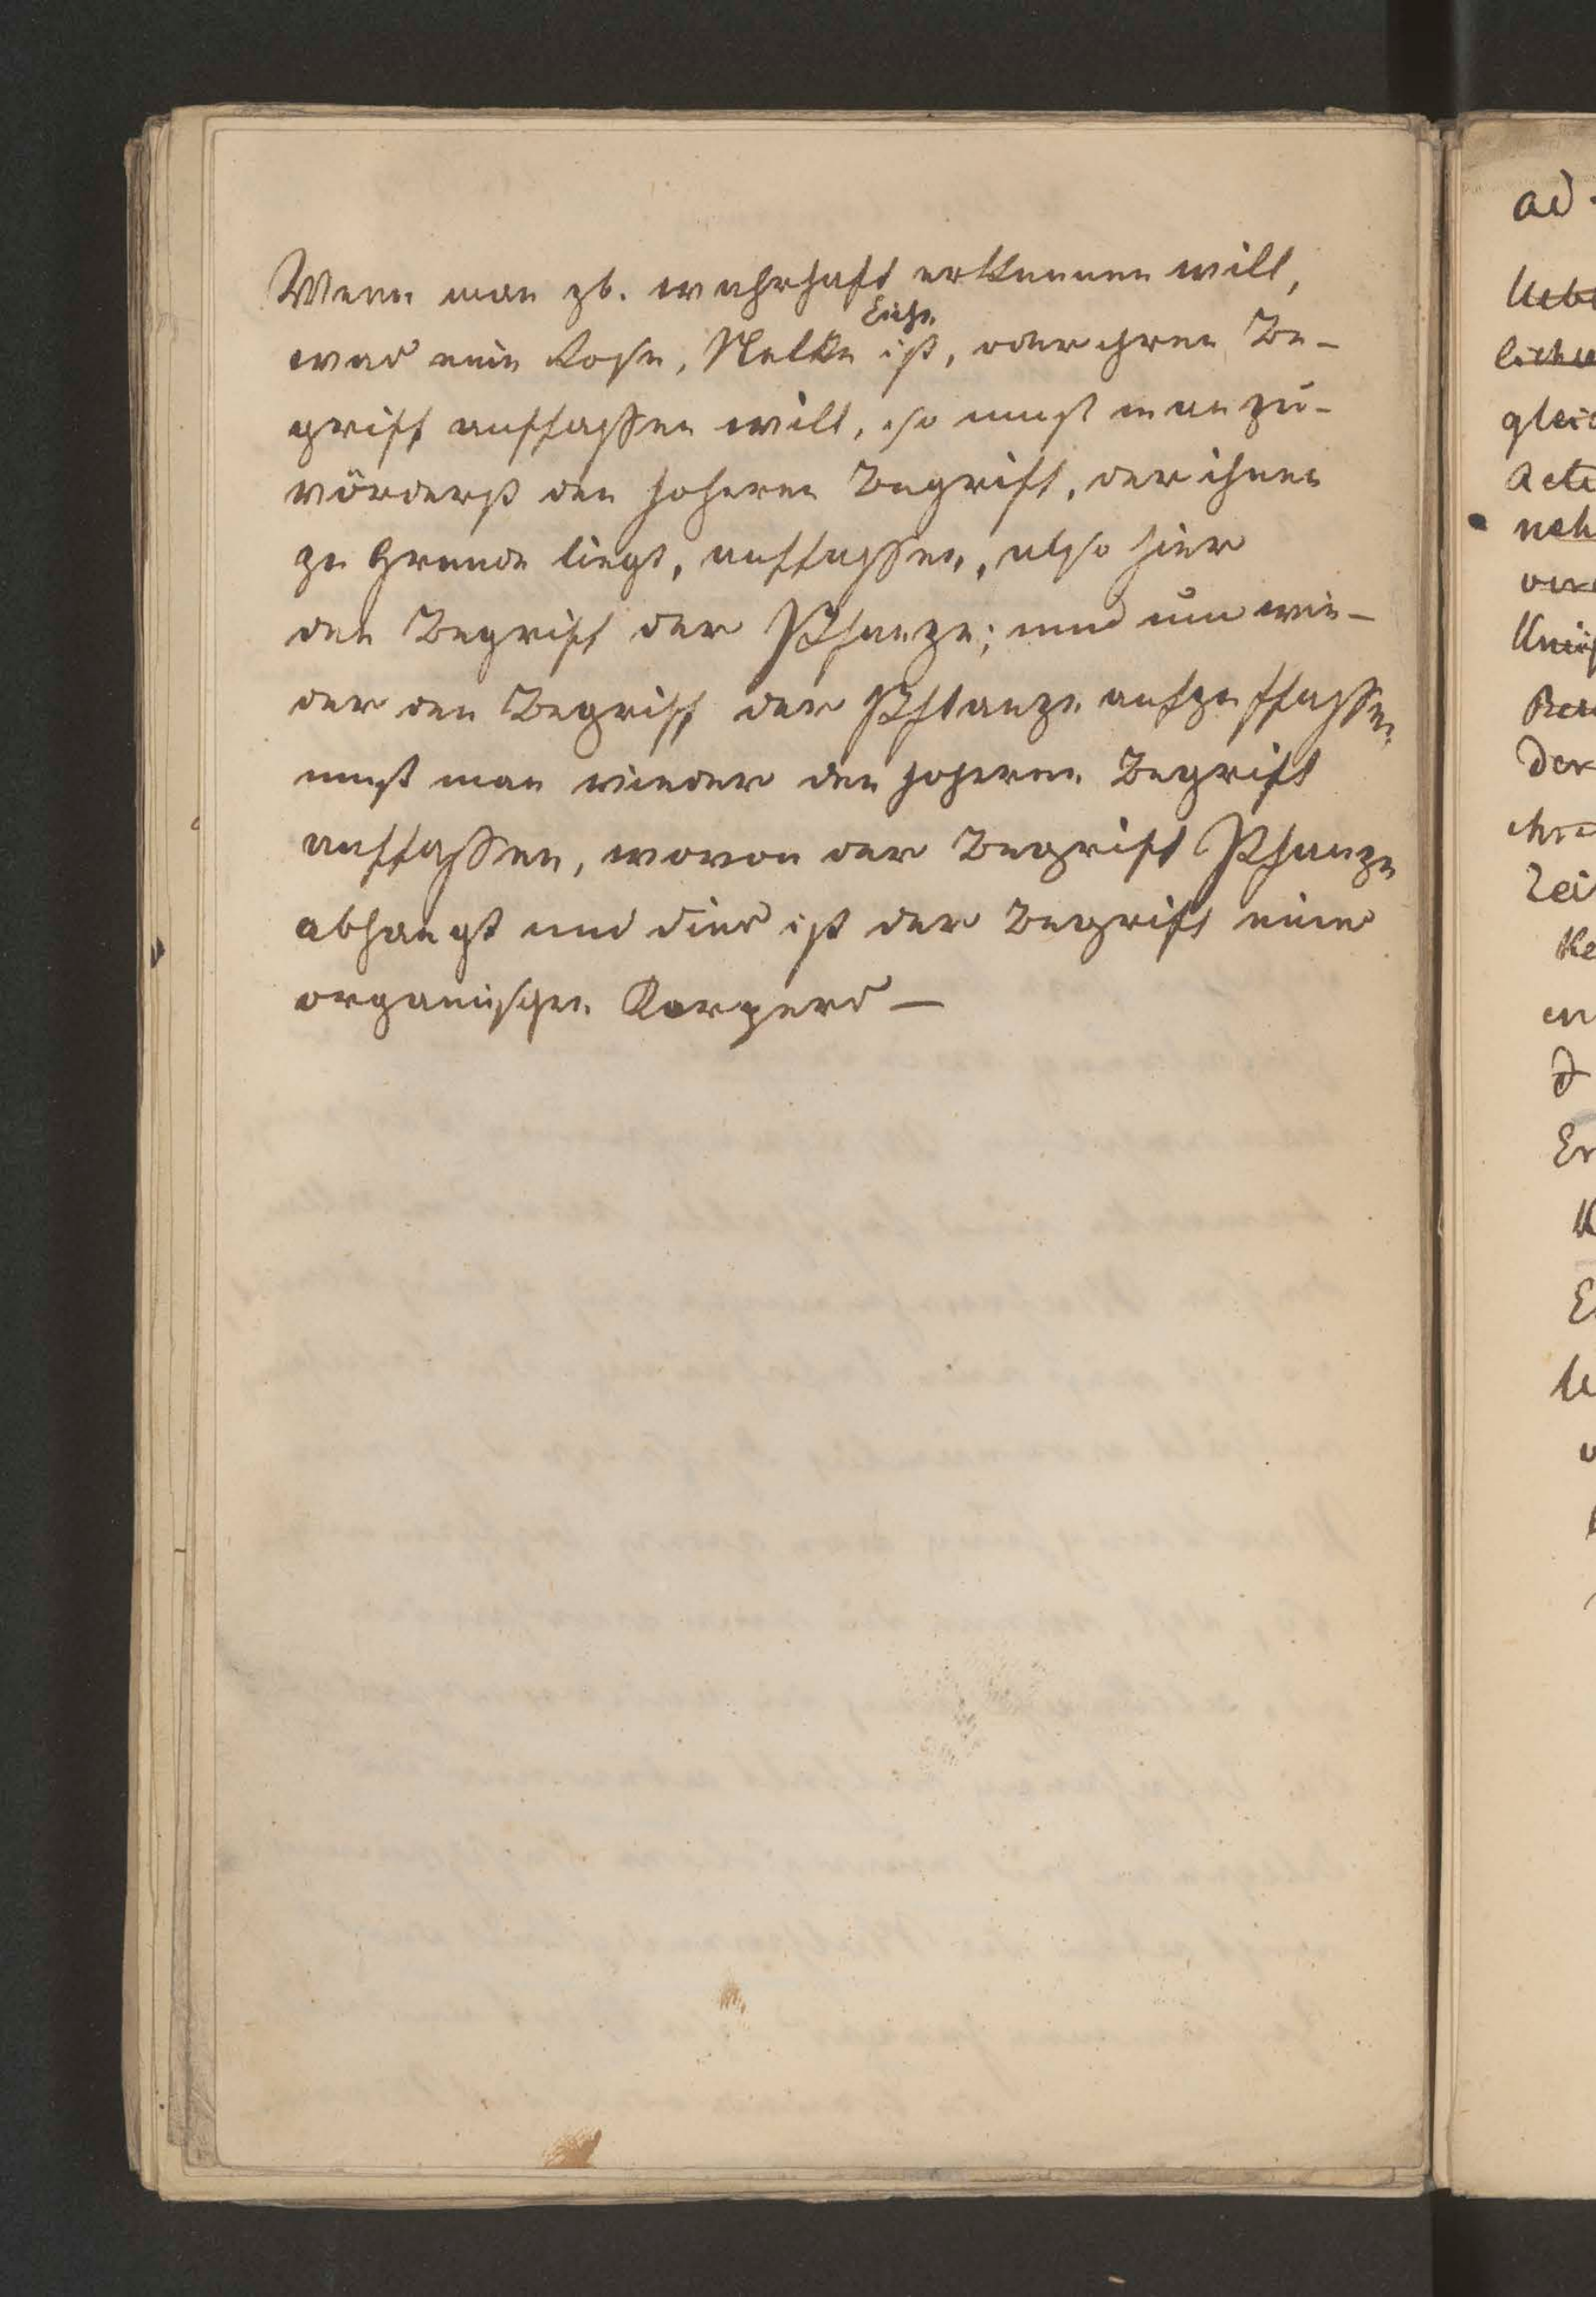 Wenn man zb. wahrhaft erkennen will,
Eiche
was eine Rose, Nelke ist, oder ihren Be-
griff auffassen will, so muß man zu-
vörderst den hoheren Begriff, der ihnen
zu Grunde liegt, auffassen, also hier
den Begriff der Pflanze; und um wie-
der den Begriff der Pflanze aufzuffassen
muß man wieder den hoheren Begriff
auffassen, wovon der Begriff Pflanze
abhangt und dies ist der Begriff eines
organischen Korpers —
ad
Uebe
gleic
Acte
neh
Der
Zei
Ke
en
Er
K
E